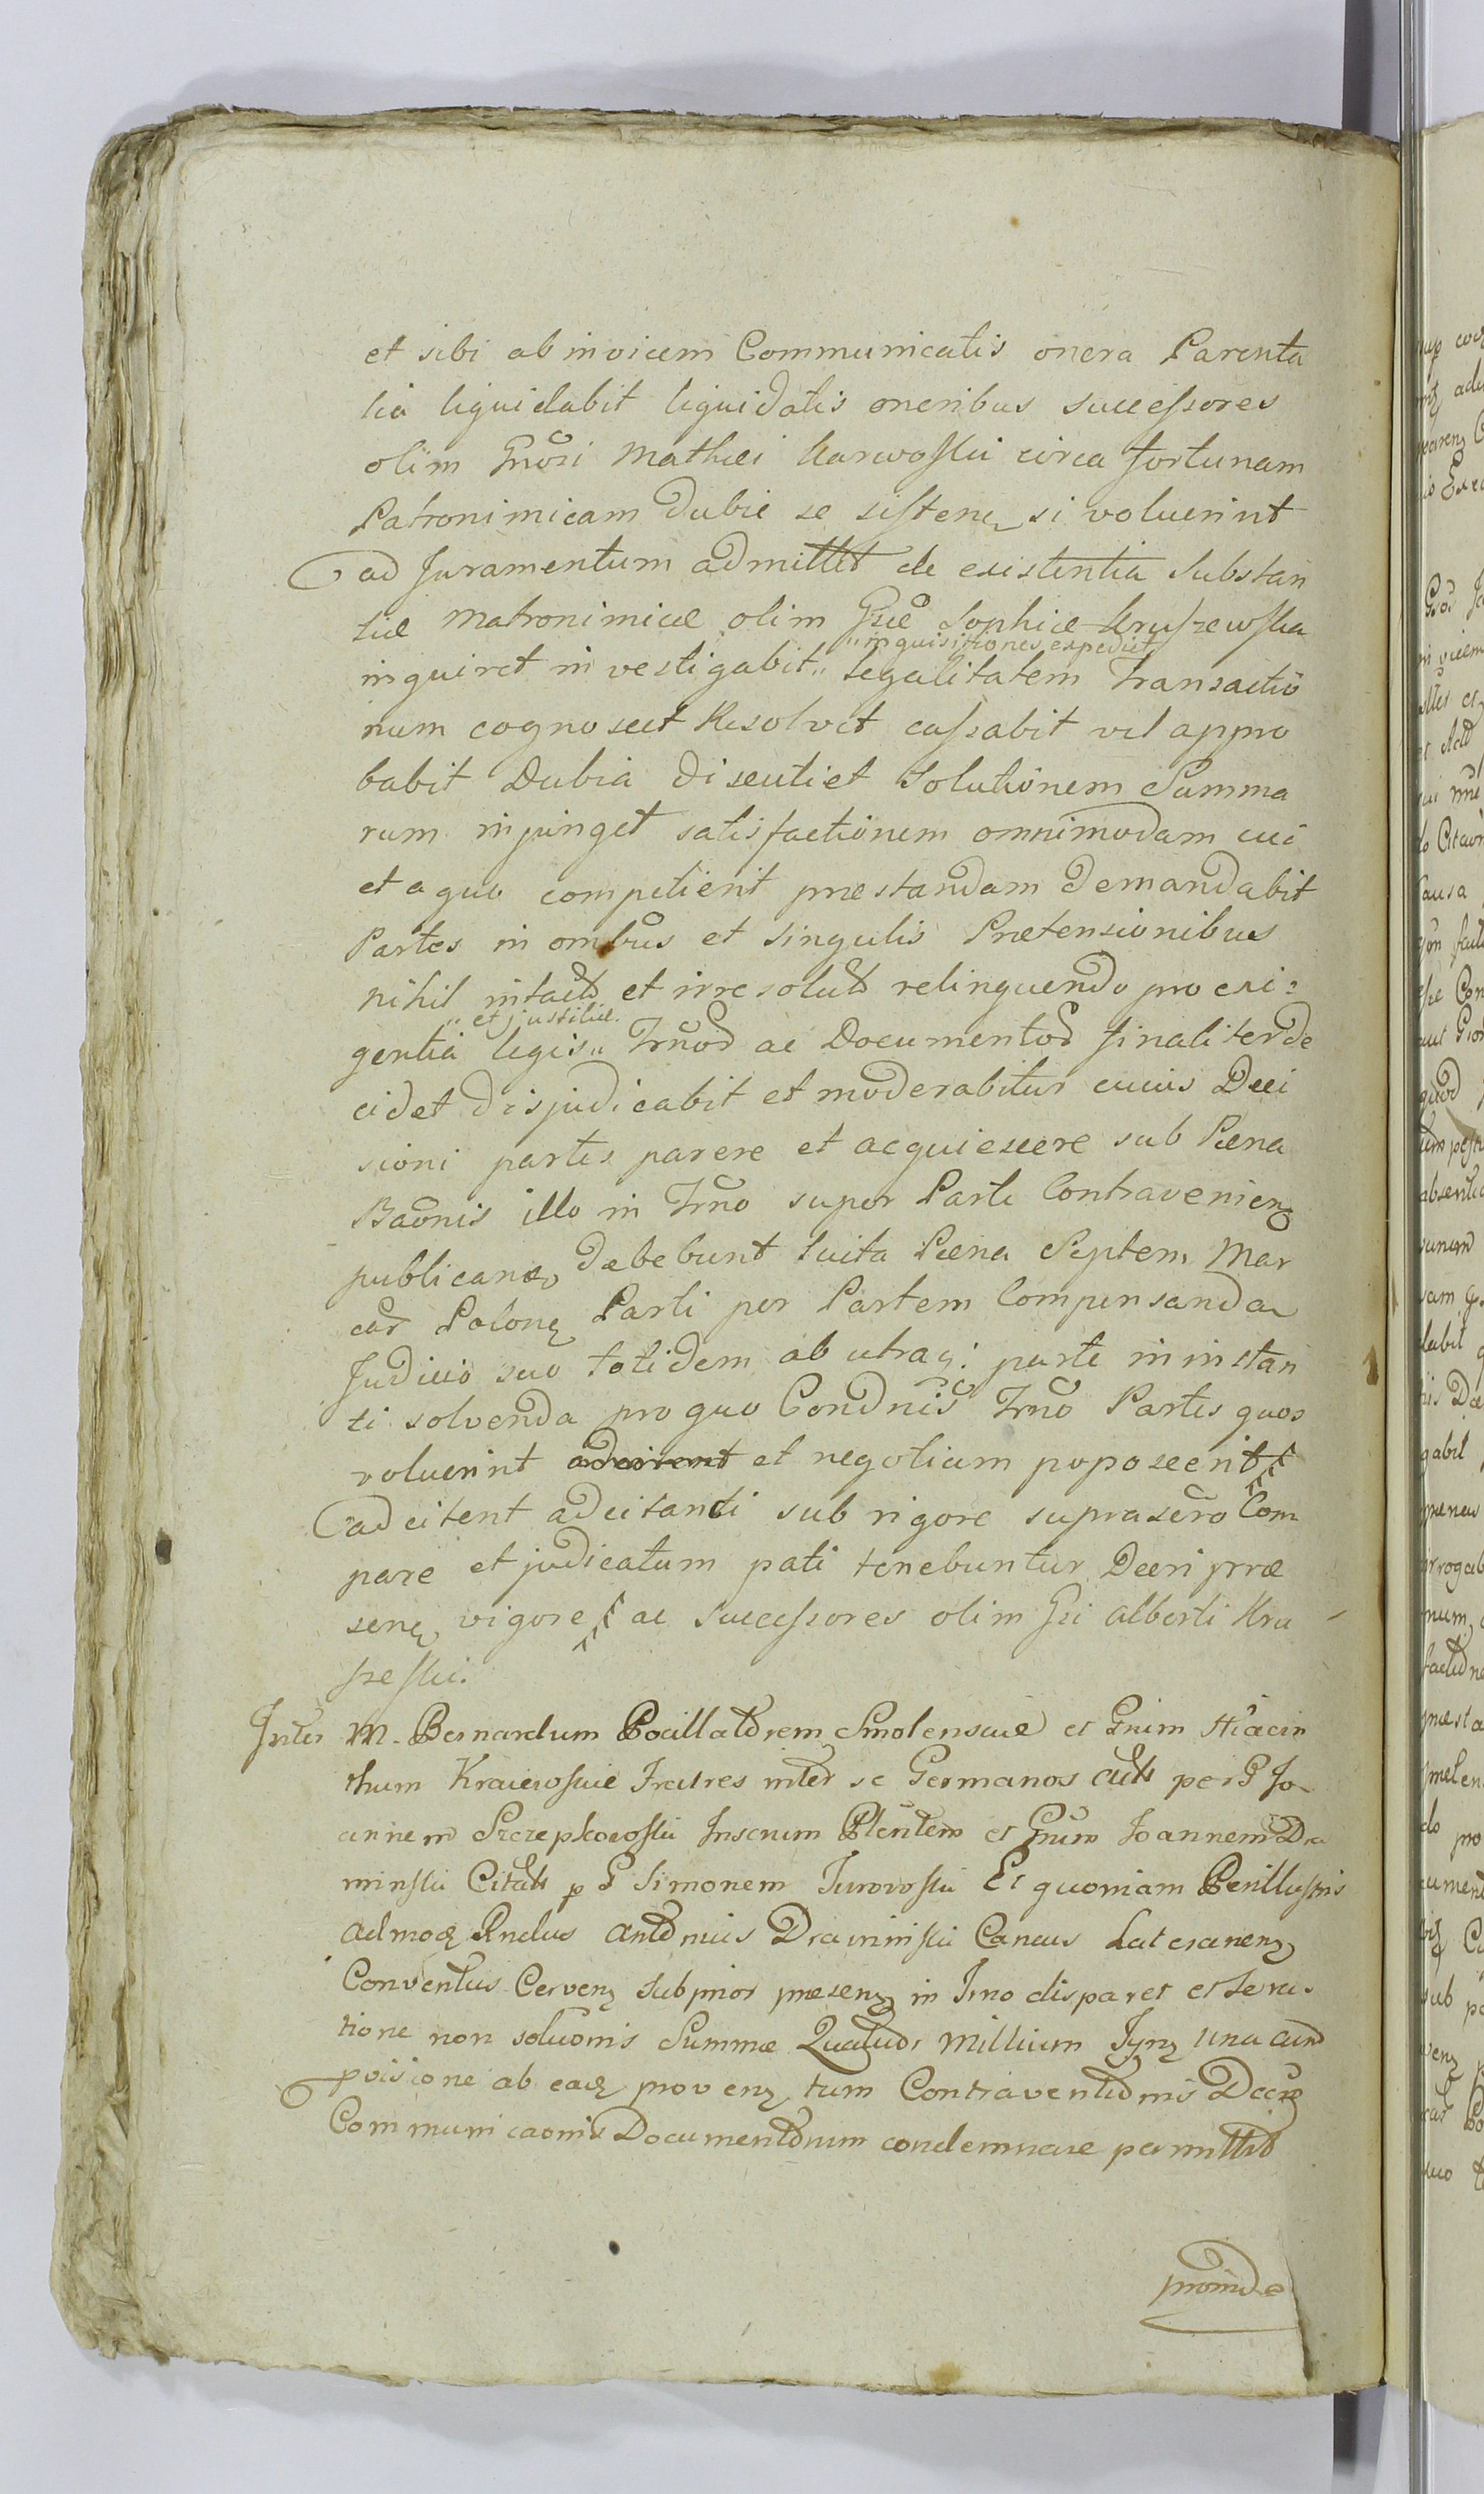 et sibi ab invicem Communicatis onera Parenta
lia liquidabit liquidatis oneribus successores
olim Gnosi Mathei Karwoski circa fortunam
Patronimicam Dubie se sisten si voluerint
ad Juramentum admittet de existentia Substan
tiæ Matronimicæ olim Gsæ Sophiæ Kruszewska
"inquisitiones expediet
inquiret investigabit" legalitatem Transactio
num cognoscet Resolvet cassabit vel appro
babit Dubia discutiet Solutionem Summa
rum injunget satisfactionem omnimodam cui
et a quo competierit præstandam demandabit
Partes in ombus et singulis Prætensionibus
nihil intacto et irresoluto relinquendo pro exi:
"et justitiæ.
gentia legis" Trnor ac Documentor finaliter de
cidet disjudicabit et moderabitur cuius Deci
sioni partes parere et acquiescere sub Pæna
Baonis illo in Trno super Parte Contravenien
publicanda debebunt luita Pæna Septem Mar
car Polon Parti per Partem Compensanda
Judicio suo totidem ab utraq: parte in instan
ti solvenda pro quo Condnis Trno Partes quos
voluerint et negotium poposcerit
adcitent adcitandi sub rigore suprascro Com
pare et judicatum pati tenebuntur Decri præ
sen vigore ac Successores olim Gsi Alberti Kru
szeski.
Inter M. Bernardum Pocillatorem Smolensciæ et Gnim Hiacin
thum Kraiewskie Fratres inter se Germanos acts per G Jo
annem Szczepkowski Inscrum Plentem et Gnum Joannem Dra
minski Citats p G Simonem Turowski Et quoniam Perillustris
admod Rndus Antonius Draminski Cancus Lateranen
Conventus Cerven Subprior præsen in Trno disparet et se ra
tione non soluonis Summæ Quatuor Millium Tyn una cum
pvisione ab ead proven tum Contraventionis Decro
Communicaonis Documentorum condemnare permittit
proinde